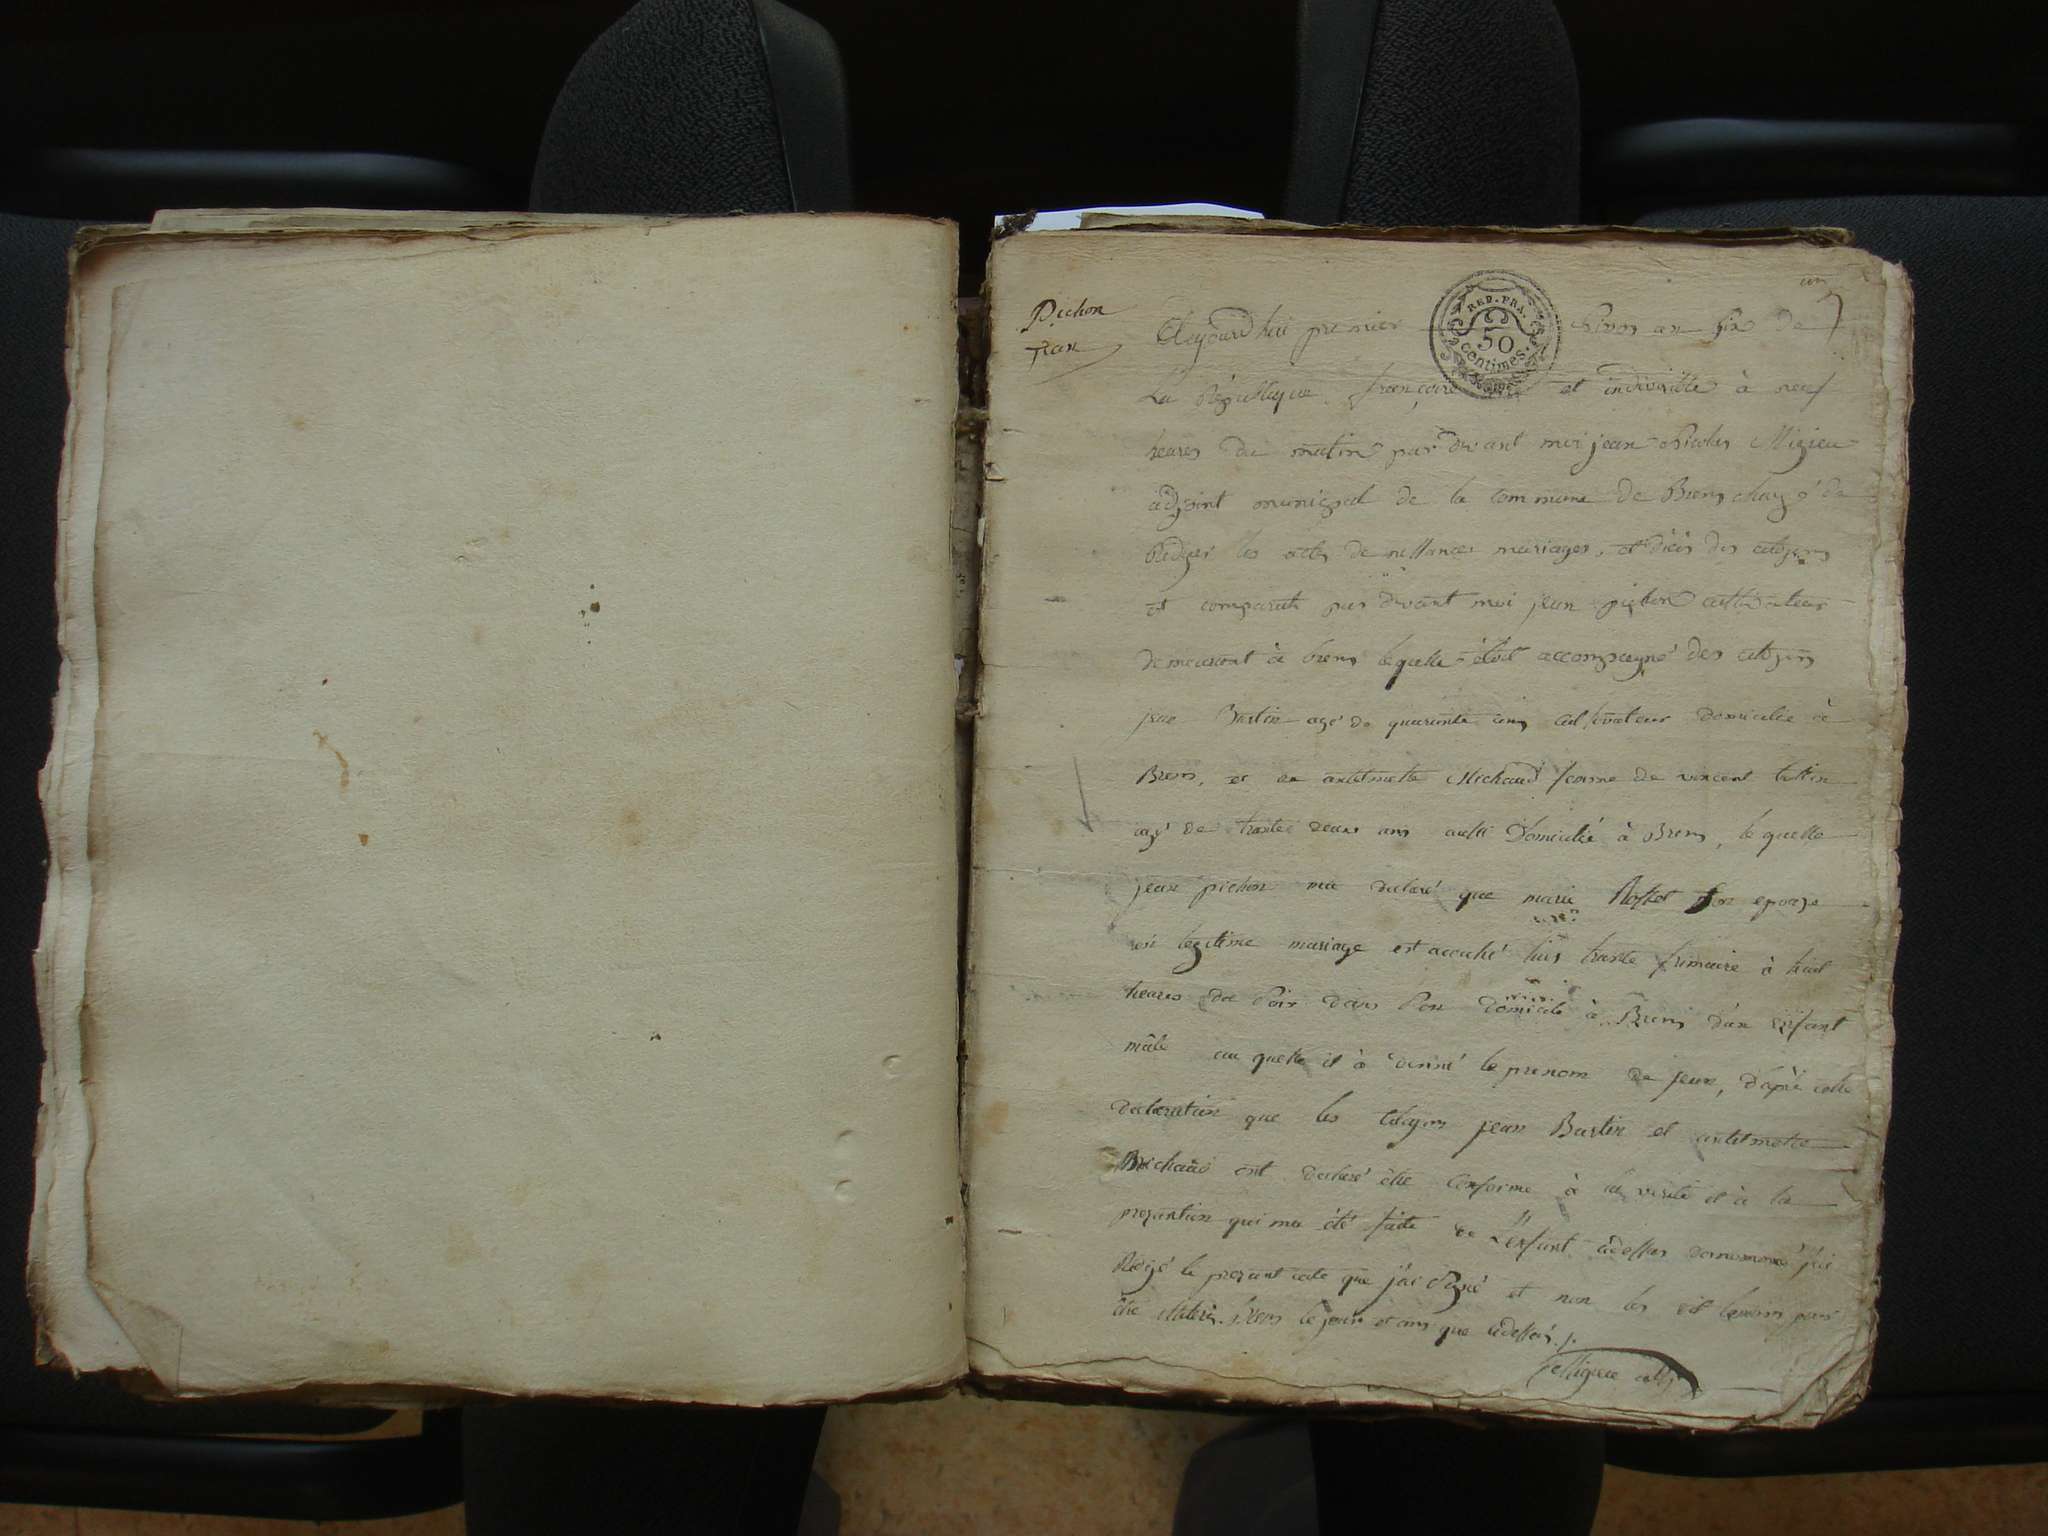 un
Pichon
Jean
REP. FRA.
50
centimes.
Aujourd'hui premier nivos an six de
La République françoise et indivisible à neuf
heures du matin par devant moi jean Nicolas Migieu
adjoint municipal de la commune de Brens chargé de
Rediger les actes de nessances mariages et décès des citoyens
est comparut par devant moi jean pichon cultivateur
demeurant à brens lequelle étoit accompagné des citoyens
jean Bastin agé de quarante cinq cultivateur domicilie à
Brens, et en antelmette Michaud femme de vincent
agé de trante deux ans aussi Domicilié à Brens, le quelle
jean pichon ma declaré que marie Rosset son epouze
en legitime mariage est accuché hier trante frimaire à huit
heures du soir dans son domicile à Brens d'un enfant
mâle au quelle il à donné le prenom de jean, d'après cette
declaration que les citoyens jean Bastin et antelmette
Michaud ont declaré être conforme à la verité et à la
prezantion qui ma été faite de L'enfant adessus denommé j'ai
Redigé le prezant acte que j'ai signé et non les dit temoins pour
être illiteré. Brens le jour et ans que adessus.
Migieu adj